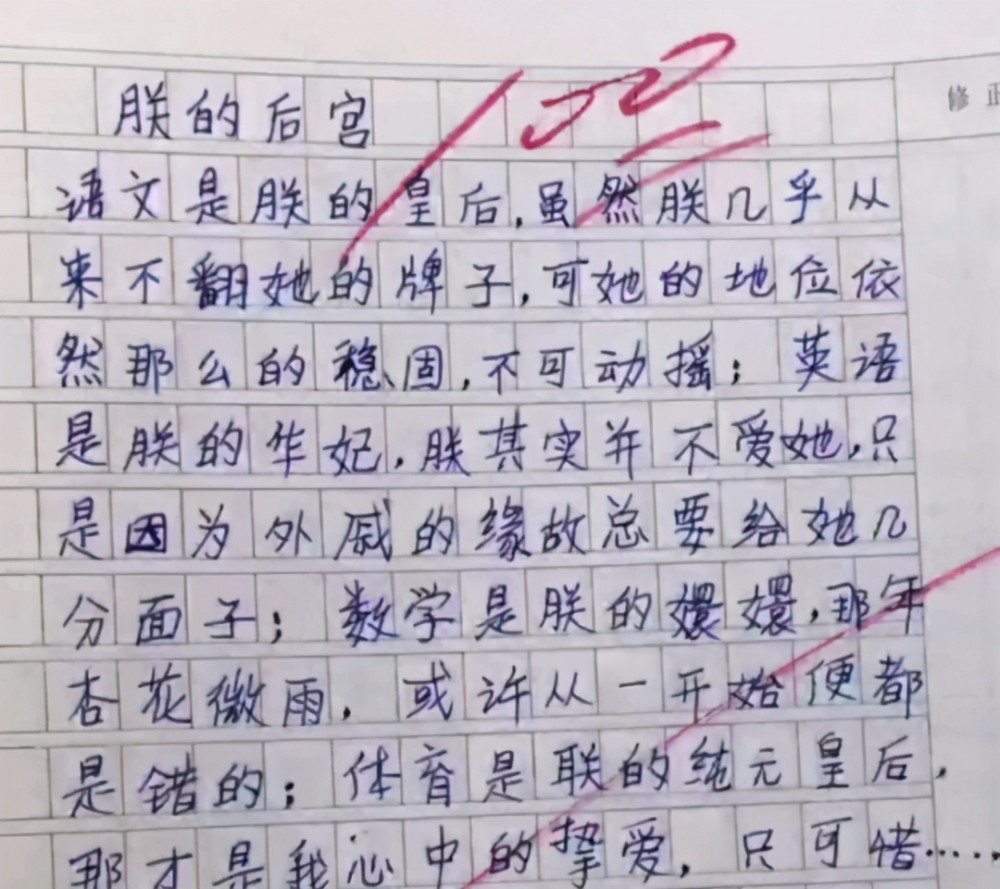 朕的后宫
100
修正
语文是朕的皇后,虽然朕几乎从
来不翻她的牌子,可她的地位依
然那么的稳固,不可动摇;英语
是朕的华妃,朕其实并不爱她,只
是因为外戚的缘故总要给她几
分面子;数学是朕的嬛嬛,那年
杏花微雨,或许从一开始便都
是错的;体育是联的纯元皇后,
那才是我心中的挚爱,只可惜……